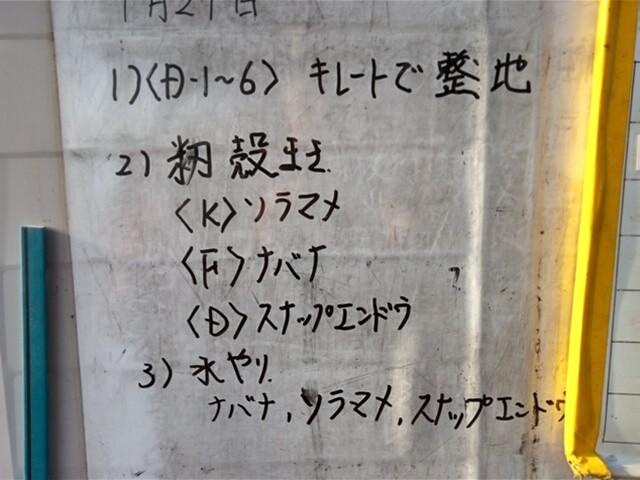 1月21日
1)〈D-1~6〉 キレートで整地
2) 籾殻
〈K〉ソラマメ
〈F〉ナバナ
〈D〉スナップエンドウ
3) 水やり
ナバナ,ソラマメ,スナップエンドウ